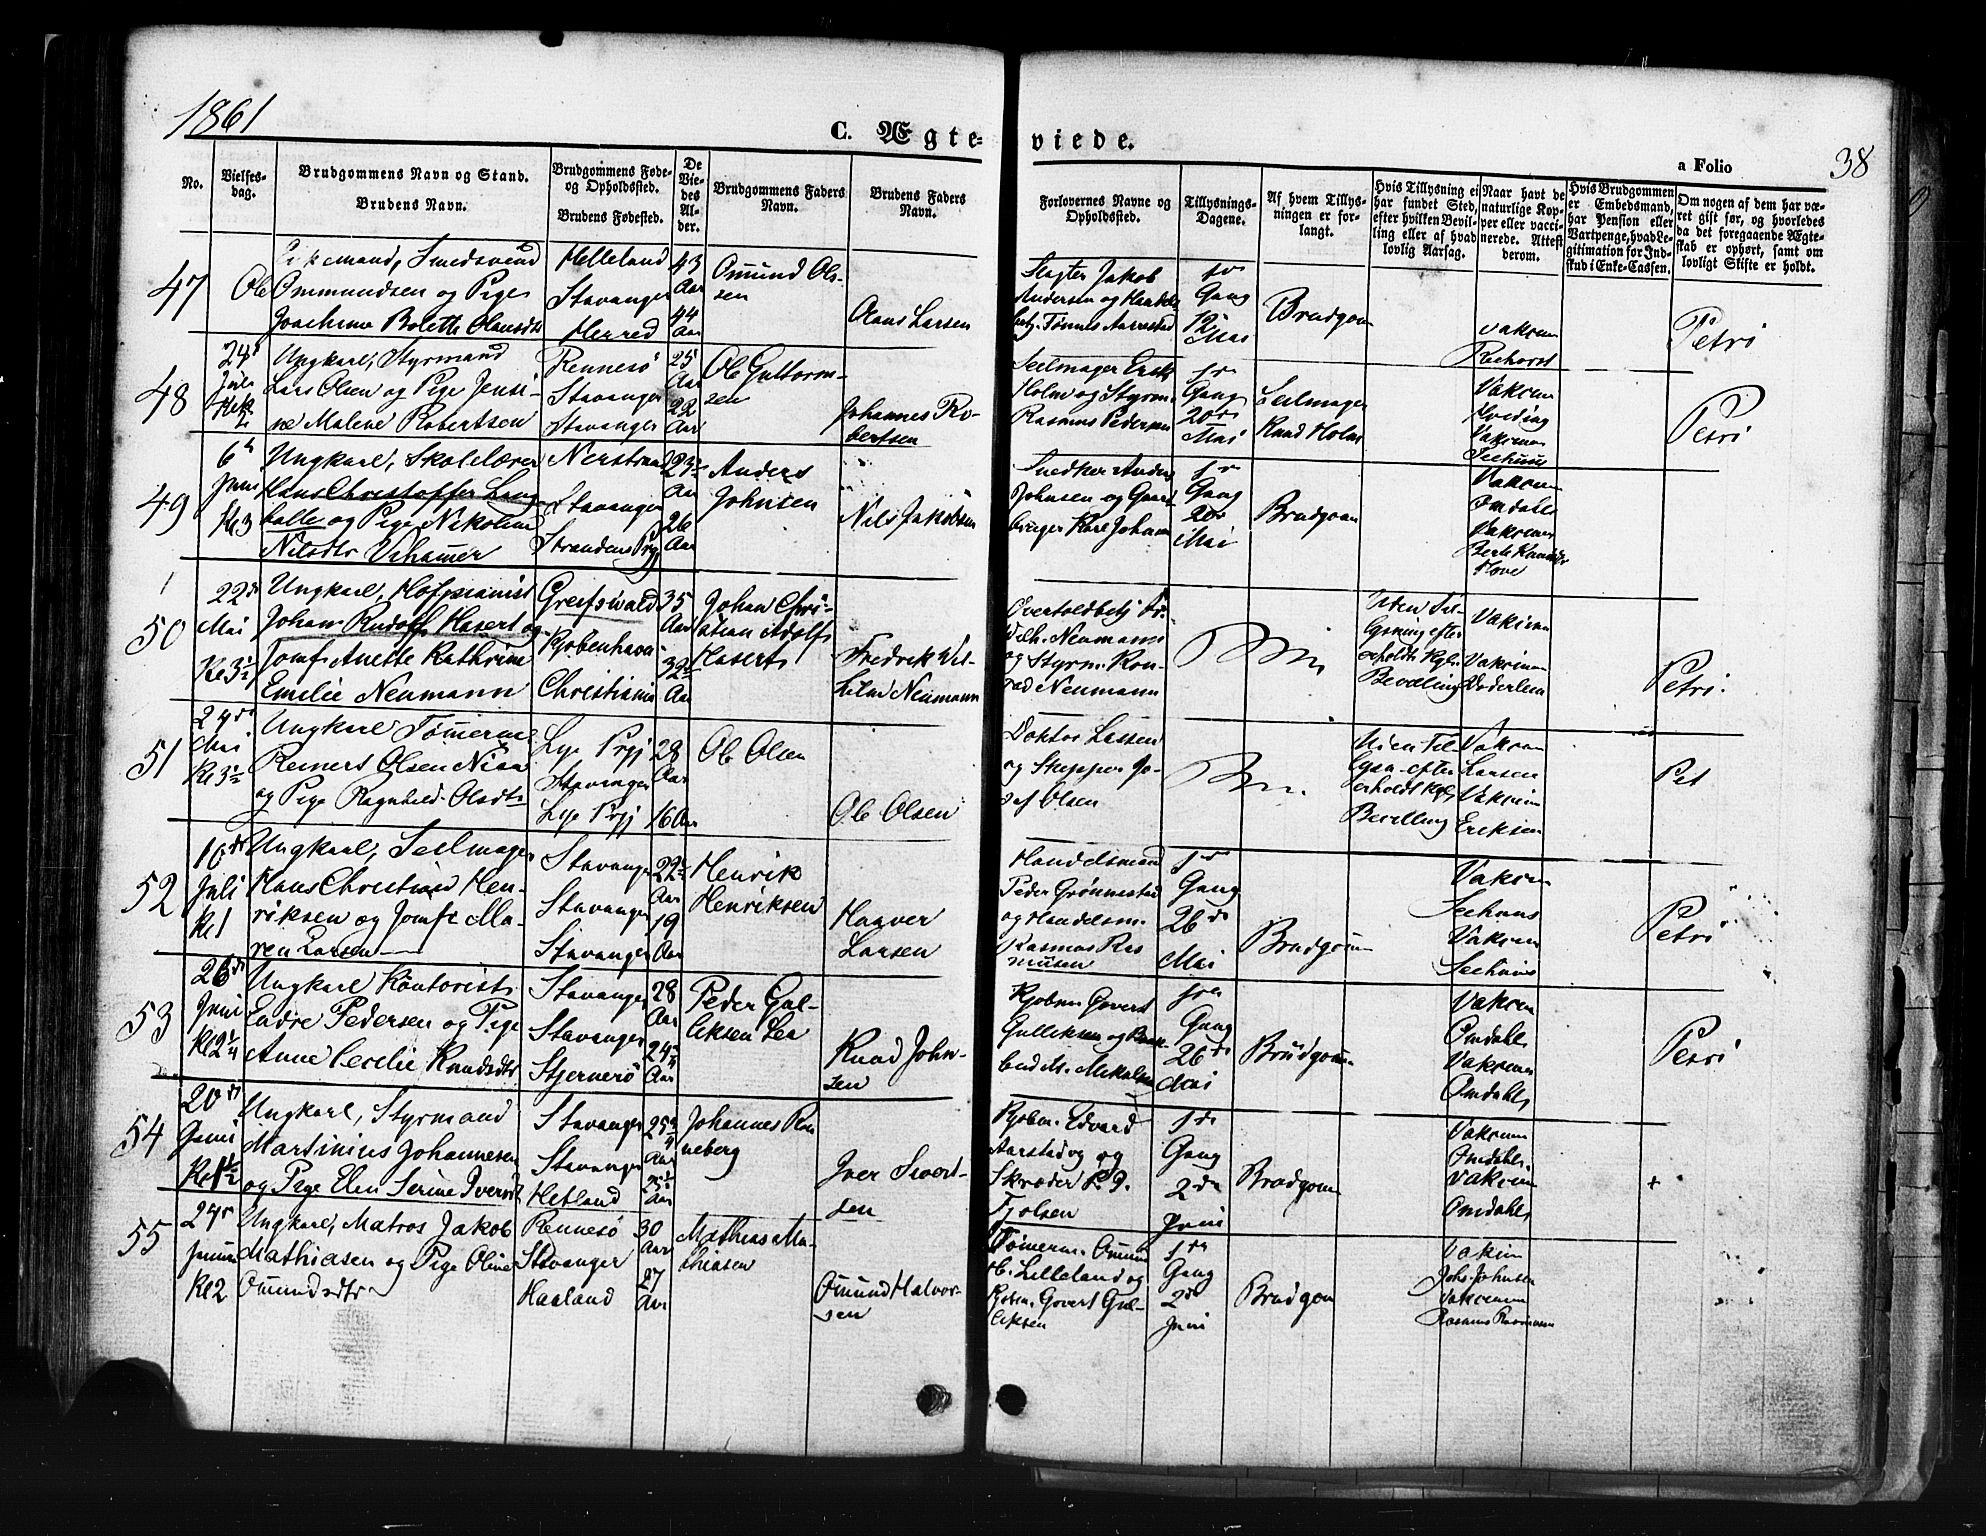 1861
C. Ægte-
viede.
a Folio
38
No.
Vielses-
dag.
Brudgommens Navn og Stand.
Brudens Navn.
Brudgommens Føde-
og Opholdssted.
Brudens Fødested.
De
Vie-
des
Al-
der.
Brudgommens Faders
Navn.
Brudens Faders
Navn.
Forlovernes Navne og
Opholdssted.
Tillysnings-
Dagene.
Af hvem Tillys-
ningen er for-
langt.
Hvis Tillysning ei
har fundet Sted,
efter hvilken Bevil-
ling eller af hvad
lovlig Aarsag.
Naar havt de
naturlige Kop-
per eller vacci-
nerede. Attest
derom.
Hvis Brudgommen
er Embedsmand,
har Pension eller
Vartpenge, hvad Le-
gitimation for Ind-
skud i Enke-Cassen.
Om nogen af dem har væ-
ret gift før, og hvorledes
da det foregaaende Ægte-
skab er ophørt, samt om
lovligt Skifte er holdt.
47
Enkemand, Smedsvend
Ole Ommundsen og Pige
Joachime Bolette Olausdtr
Helleland
Stavanger
Herred
43
Aar
44
Aar
Omund Ols-
sen
Olaus Larsen
Slagter Jakob
Andersen og Handels
betj. Tønnes Aarrestad
1ste
Gang
12
Mai
Brudgom
Vakcin
Petri
48
24de
Juli
Ungkarl, Styrmand
Lars Olsen og Pige Jensi-
ne Malene Robertsen
Rennesö
Stavanger
Stavanger
25
Aar
22
Aar
Ole Guttorm-
sen
Johannes Ro-
bertsen
Seilmager Erik
Holm og Styrm.
Rasmus Pedersen
Gang
20de
Mai
Seilmager
Knud Holm
Vakcin
Vakcin
Seehuus
Petri
49
6te
Juni
Kl 3
Ungkarl, Skolelærer
Hans Christoffer Lang
balle og Pige Nikoline
Nilsdtr
Nerstrand
Stavanger
Strandens Prgj
Aar
26
Aar
Anders
Johnsen
Nils Jakobsen
Snedker Anders
Johnsen og Gaard
bruger Karl Johan
Gang
20de
Mai
Brudgom
Vakcin
Omdahl
Vakcin
50
22de
Mai
Kl 3½
Ungkarl, Hofpianist
Johan Rudolf Hasert og
Jomf. Anette Kathrine
Emilie Neumann
Greifswald
Kjøbenhavn
Christiania
35
Aar
32
Aar
Johan Chri-
stian Adolf
Hasert
Fredrik Wil-
helm Neumann
Overtoldbetj. Fr.
Wilh. Neumann
og Styrm. Kon-
rad Neumann
Uden Til-
lysning efter
erholdt Kgl.
Bevilling
Vakcin
Vakcin
Petri.
51
24de
Mai
Kl 3½
Ungkarl Tømerm
Reinert Olsen
og Pige Ragnhild Olsdtr
Lye Prgj
Stavanger
Lye Prgj
28
Aar
16 Aar
Ole Olsen
Ole Olsen
Doktor Lassen
og Skipper Jo-
sef Olsen
Uden Til
lysn. efter
erholdt Kgl.
Bevilling
Vakcin
Larsen
Vakcin
Eriksen
Pet
52
10de
Juli
Kl 1
Ungkarl, Seilmager
Hans Christian Hen-
riksen og Jomf. Ma-
ren Larsen
Stavanger
Stavanger
Stavanger
22
Aar
19
Aar
Henrik
Henriksen
Haaver
Larsen
Handelsmand
Peder Grønnestad
og Handelsm.
Rasmus Ras
musen
1ste
Gang
26de
Mai
Brudgom
Vakcin
Seehuus
Vakcin
Seehuus
Petri
53
26de
Juni
Kl 2¼
Ungkarl Kontorist
Endre Pedersen og Pige
Anne Cecilie Knudsdtr
Stavanger
Stavanger
Stjernerö
28
Aar
24
Aar
Peder Gul-
liksen Lea
Knud John-
sen
Kjøbm. Govert
Gulliksen og
M. Mikalsen
1ste
Gang
26de
Mai
Brudgom
Vakcin
Omdahl
Vakcin
Omdahl
Petri
54
20de
Juni
Ungkarl, Styrmand
Martinius Johannesen
og Pige Elen Serine Iversdtr
Stavanger
Stavanger
Hetland
25¾
Aar
Aar
Johannes Ron
neberg
Iver Sivert-
sen
Kjøbm. Edvard
Aarstad og
Skræder P. J.
Fjelsen
1ste
Gang
2den
Juni
Brudgom
Vakcin
Omdahl.
Vakcin
Omdahl
+
55
24de
Juni
Kl 2
Ungkarl, Matros Jakob
Mathiasen og Pige Oline
Omundsdtr
Rennesö
Stavanger
Haaland
30
Aar
27
Aar
Mathias Ma-
thiasen
Omund Halvor-
sen
Tømerm. Omun
H. Lilleland og
Kjøbm. Govert Gul-
liksen
1ste
Gang
2de
Juni
Brudgom
Vakcin
Johs. Johnsen
Vakcin
Rasmus Rasmusen